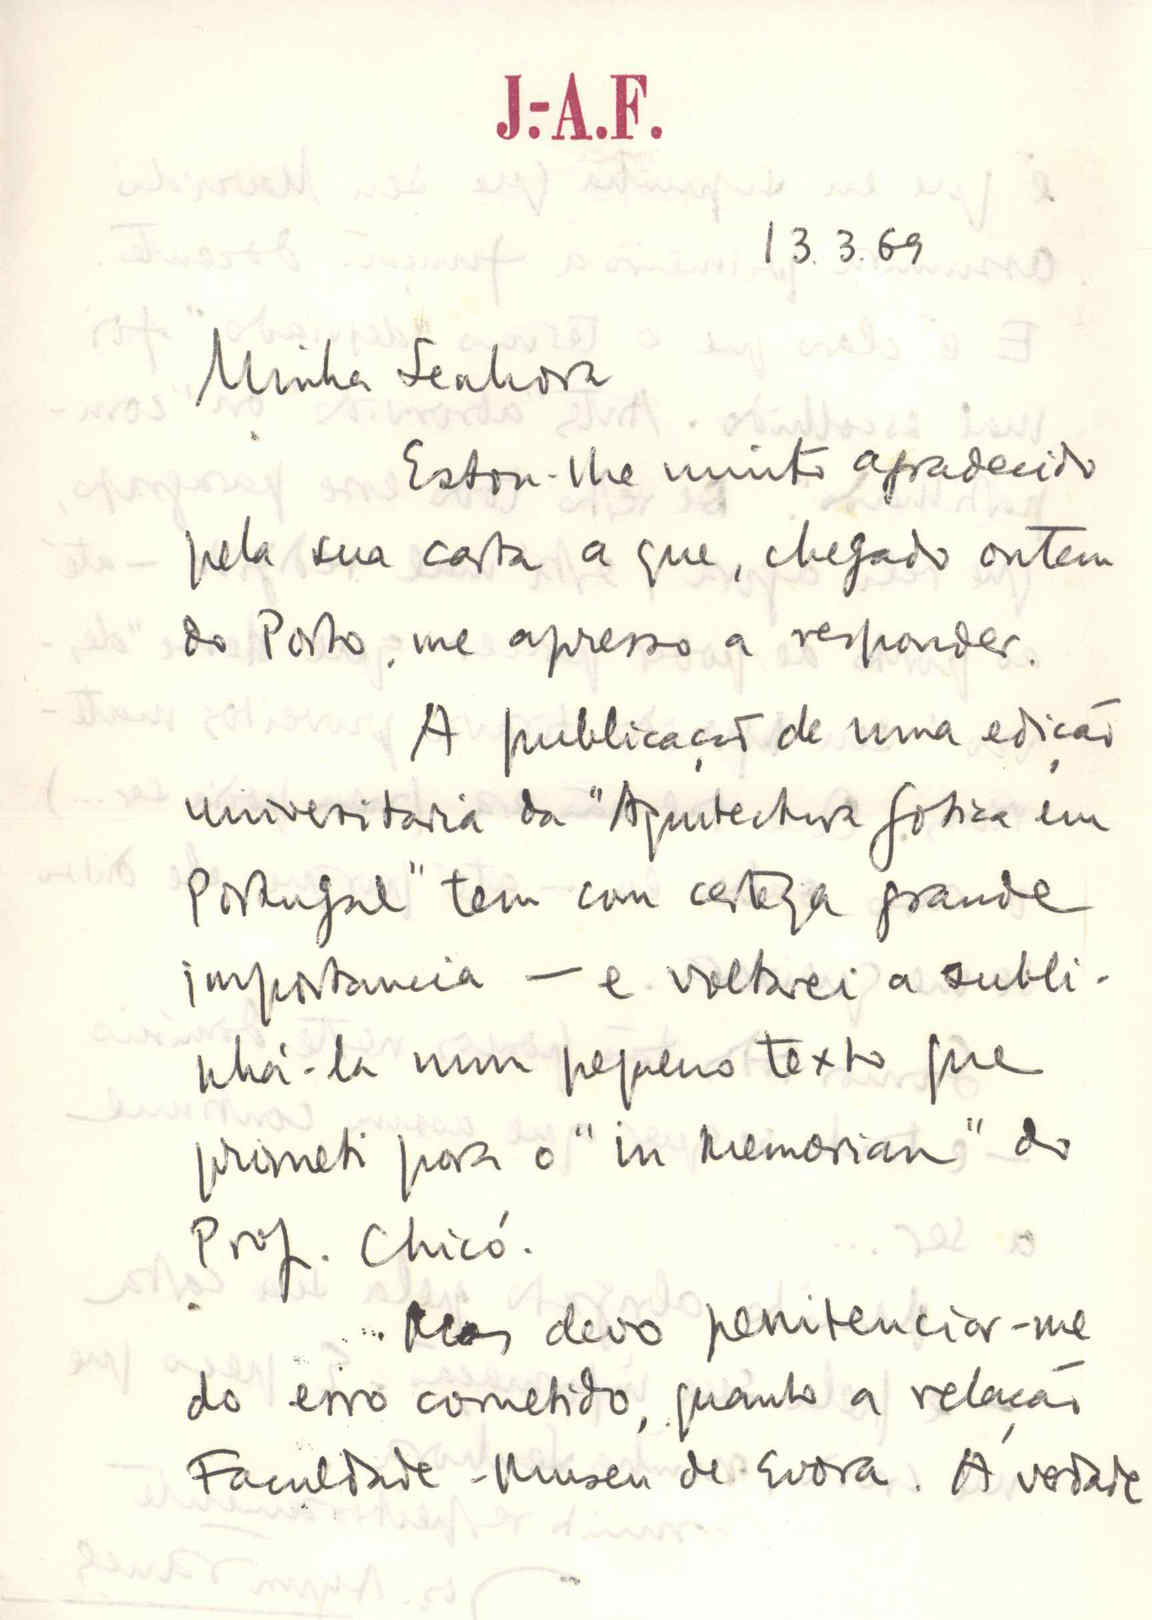 J.-A.F.
13.3.69
Minha Senhora
Estou-lhe muito agradecido
pela sua carta a que, chegado ontem
do Porto, me apresso a responder.
A publicação de uma edição
universitaria da "Arquitectura gótica em
Portugal" tem com certeza grande
importancia — e voltarei a subli-
nhá-la num pequeno texto que
prometi para o "in memoriam" do
Prof. Chicó.
Mas devo penitenciar-me
do erro cometido, quanto a relação
Faculdade-Museu de Evora. A verdade